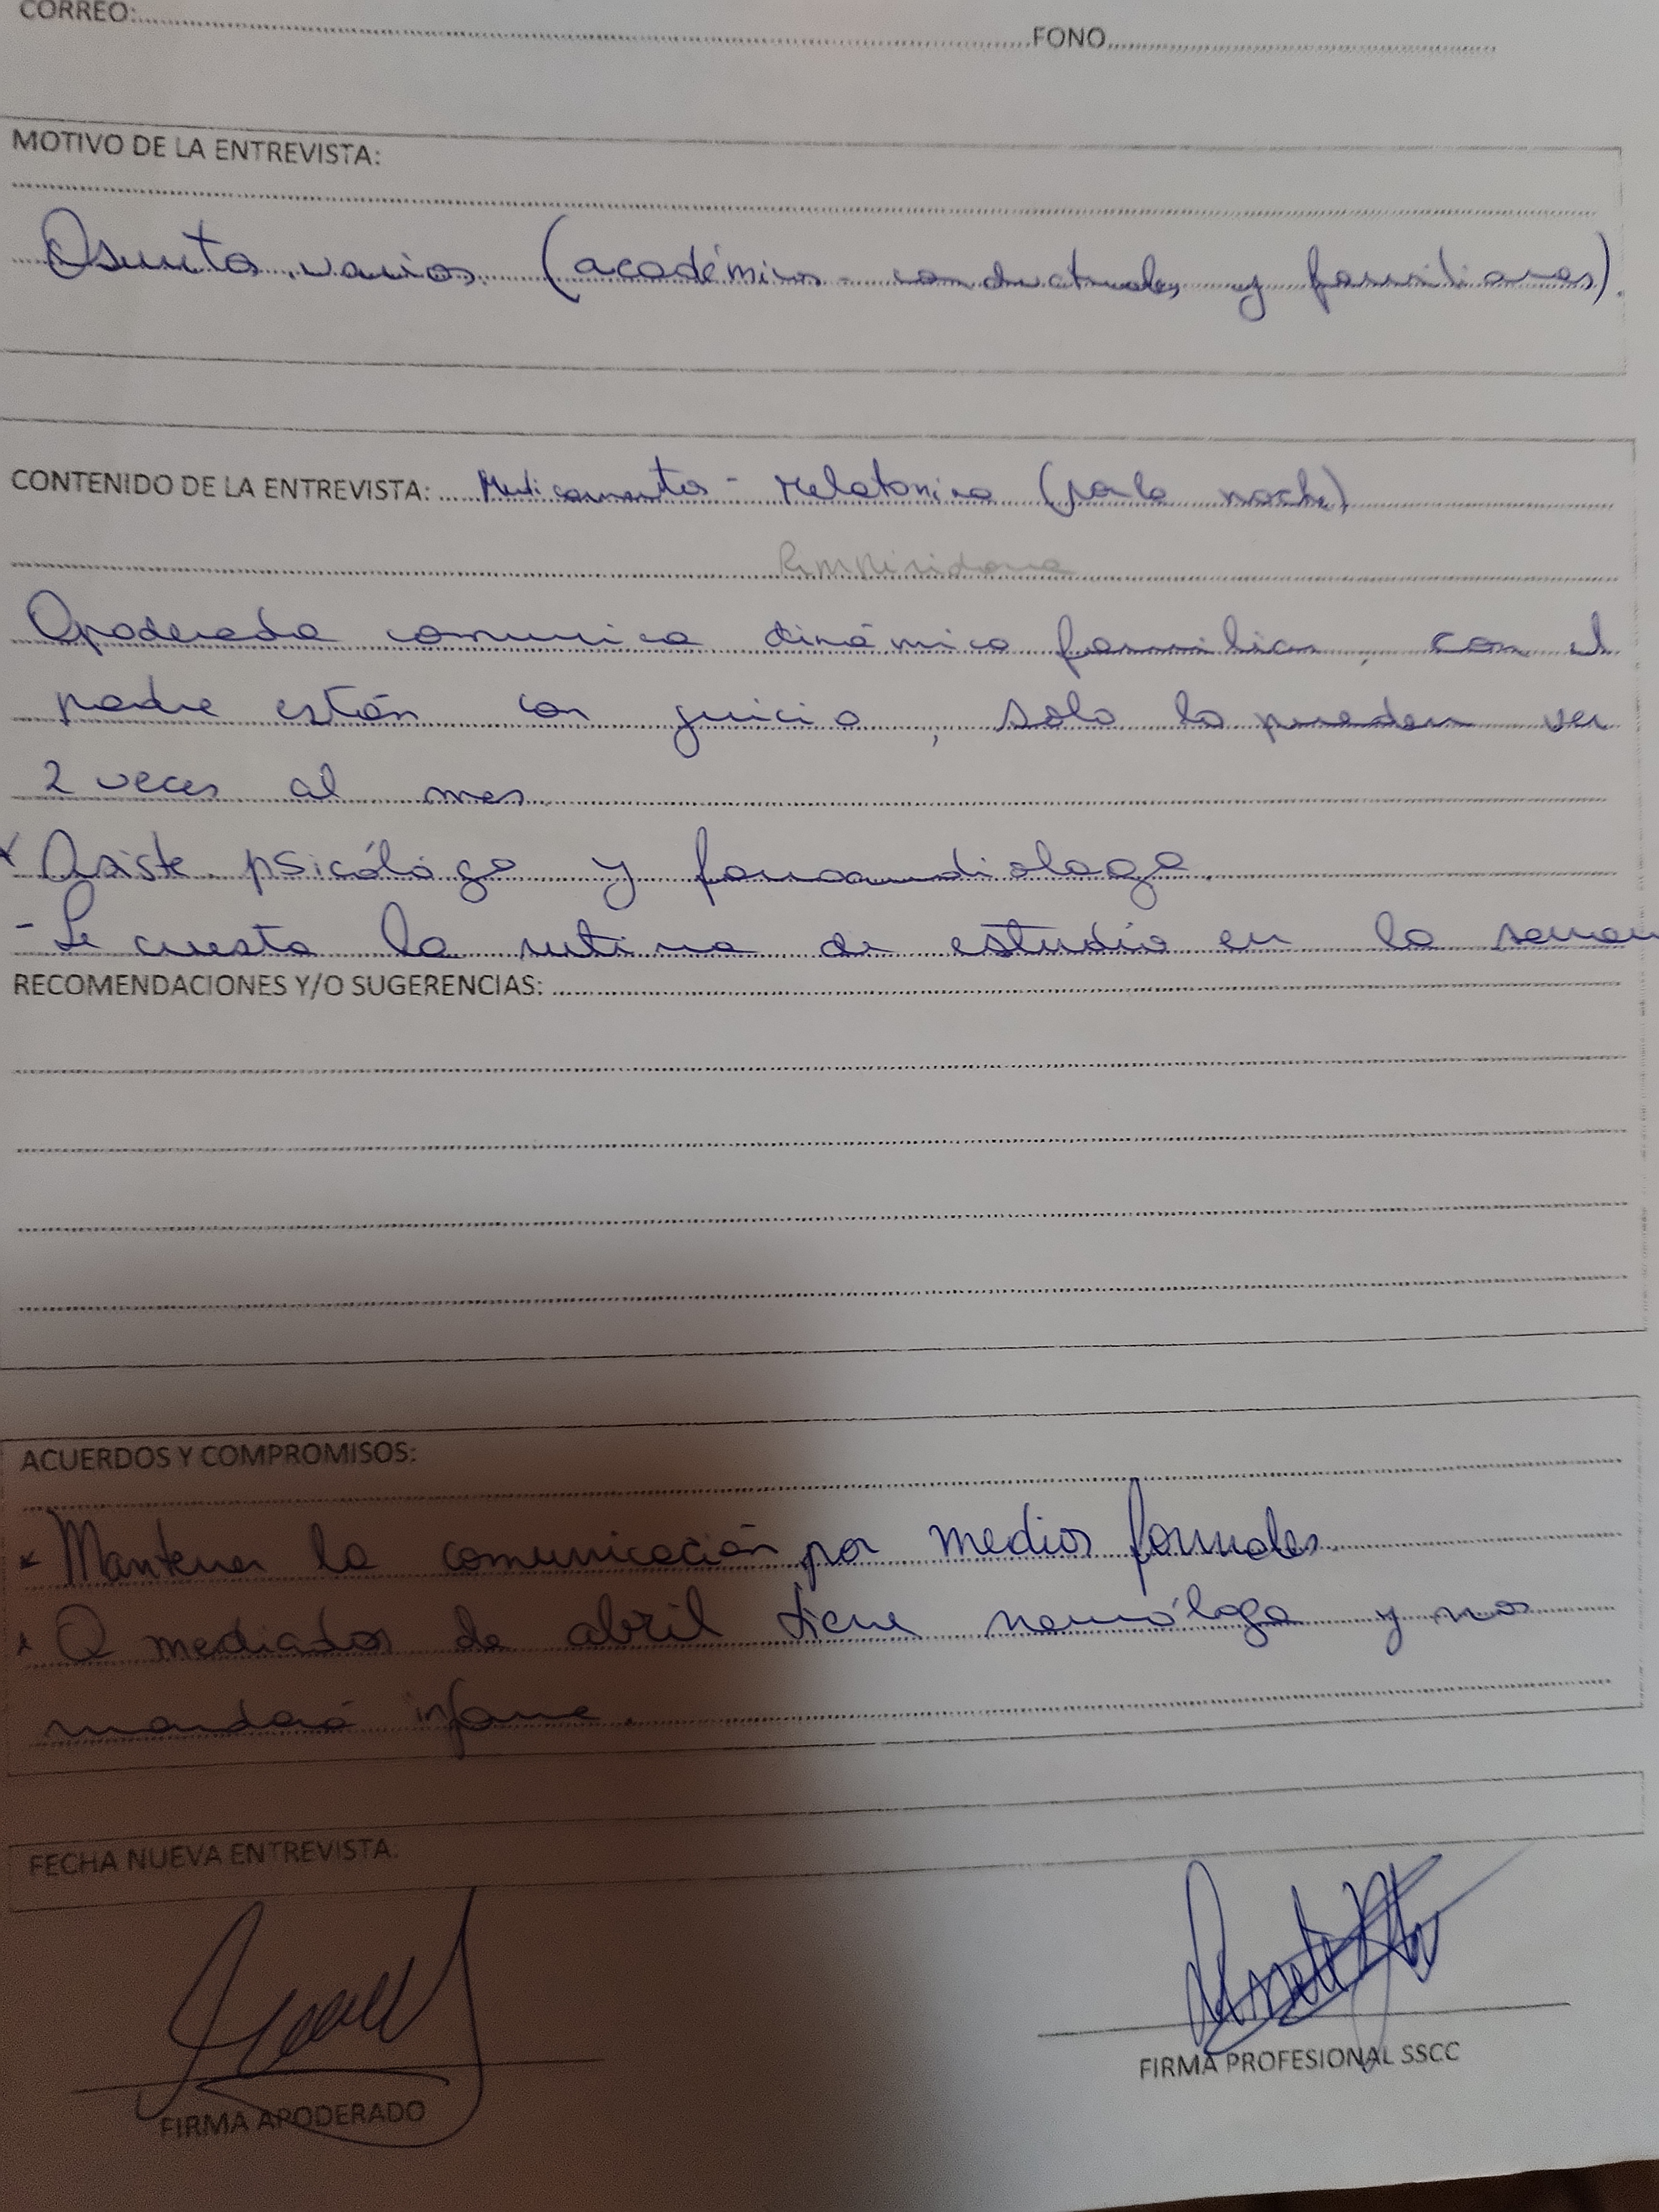 CORREO: FONO
MOTIVO DE LA ENTREVISTA:
Asuntos varios (académicos - conductuales y familiares).
CONTENIDO DE LA ENTREVISTA: Medicamentos - Melatonina (por la noche)
Apoderada comunica dinámica familiar, con el
padre están con juicio, solo lo pueden ver
2 veces al mes
* Asiste psicólogo y fonoaudiologa.
- Le cuesta la rutina de estudio en la seman
RECOMENDACIONES Y/O SUGERENCIAS:
ACUERDOS Y COMPROMISOS:
* Mantener la comunicación por medios formales.
* A mediados de abril tiene neuróloga y nos
mandará informe.
FECHA NUEVA ENTREVISTA:
FIRMA APODERADO
FIRMA PROFESIONAL SSCC